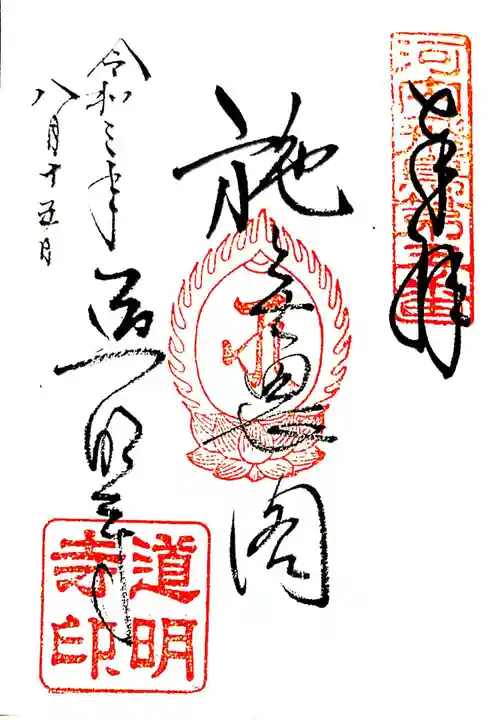 奉拝
施無畏閣
令和三年
八月十五日
道明寺
道明
寺印